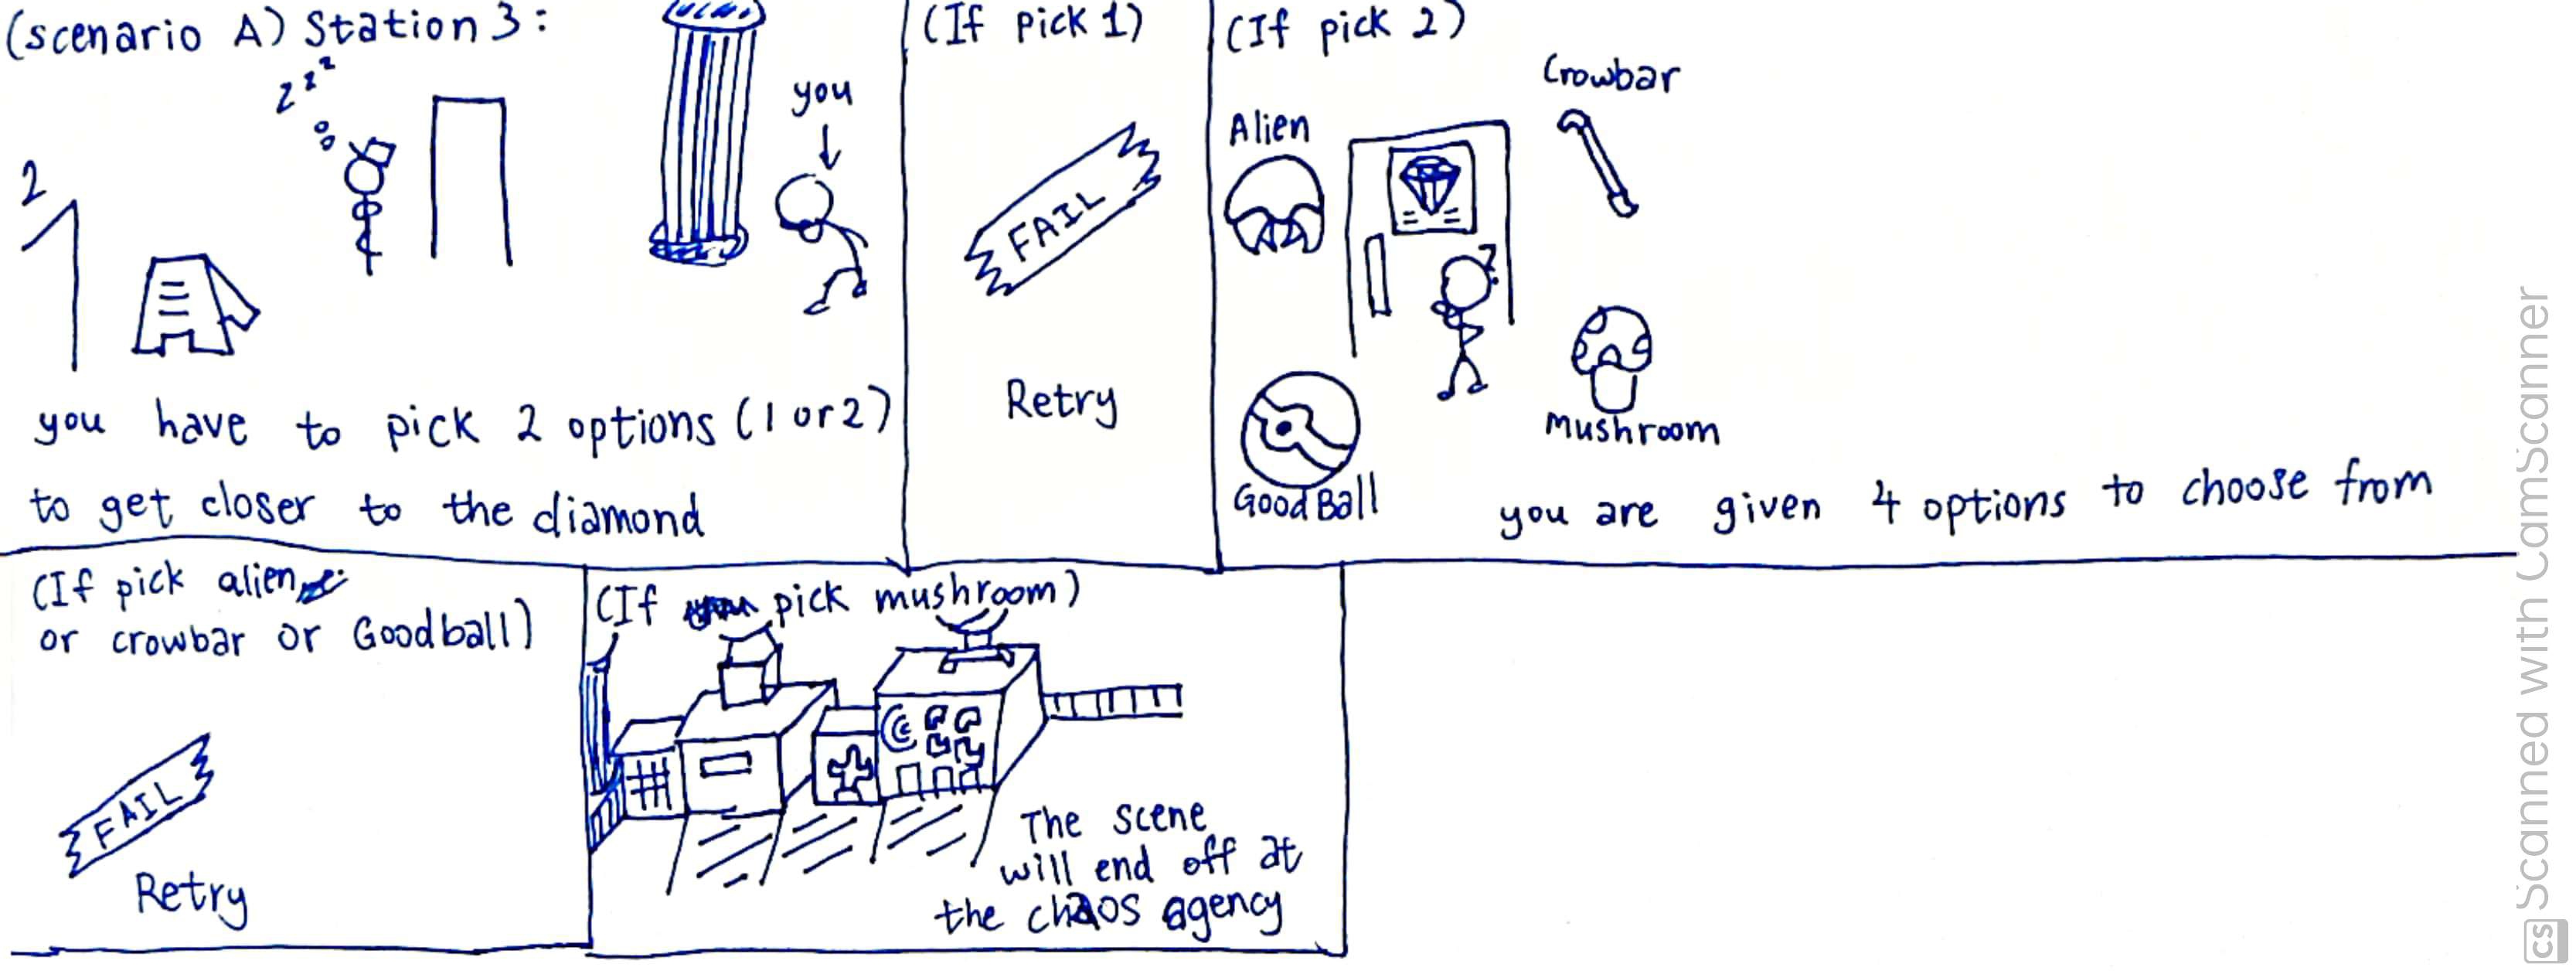 (scenario A) Station 3:
zzz
2
you
you have to pick 2 options (1 or 2)
to get closer to the diamond
(If pick 1)
FAIL
Retry
(If pick 2)
Crowbar
Alien
Mushroom
GoodBall
you are given 4 options to choose from
(If pick alien
or crowbar or Goodball)
FAIL
Retry
(If pick mushroom)
The scene
will end off at
the chaos agency
CS Scanned with CamScanner